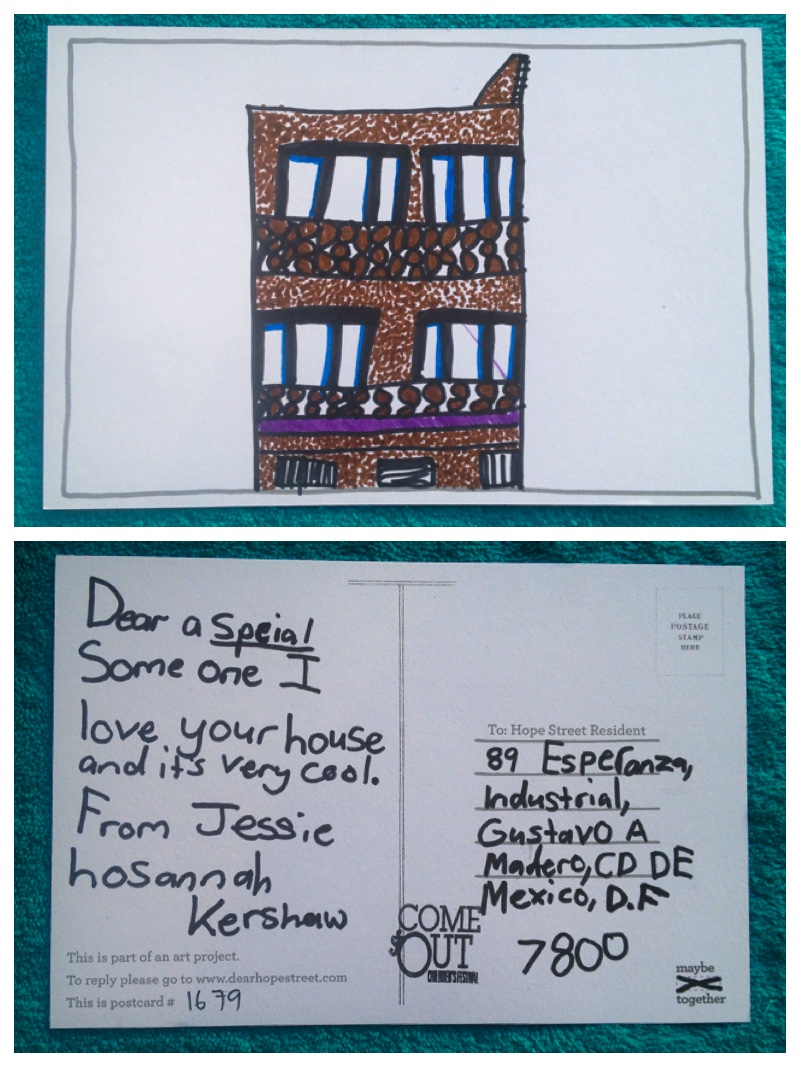 Dear a Speial
Some one I
love your house
and it's very cool.
From Jessie
hosannah
Kershaw
This is part of an art project.
To reply please go to www.dearhopestreet.com
This is postcard # 1679
PLACE
POSTAGE
STAMP
HERE
To: Hope Street Resident
89 Esperanza,
Industrial,
Gustavo A
Madero, CD DE
Mexico, D.F
7800
COME
OUT
CHILDREN'S FESTIVAL
maybe
together